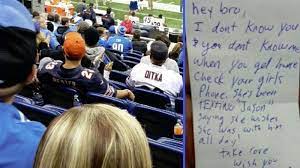 hey bro,
I dont know you
& you dont know me
When you get home
Check your girls
Phone. She's been
TEXTING "Jason"
Saying she wishes
She was with him
all day.
take care
wish you
DITKA